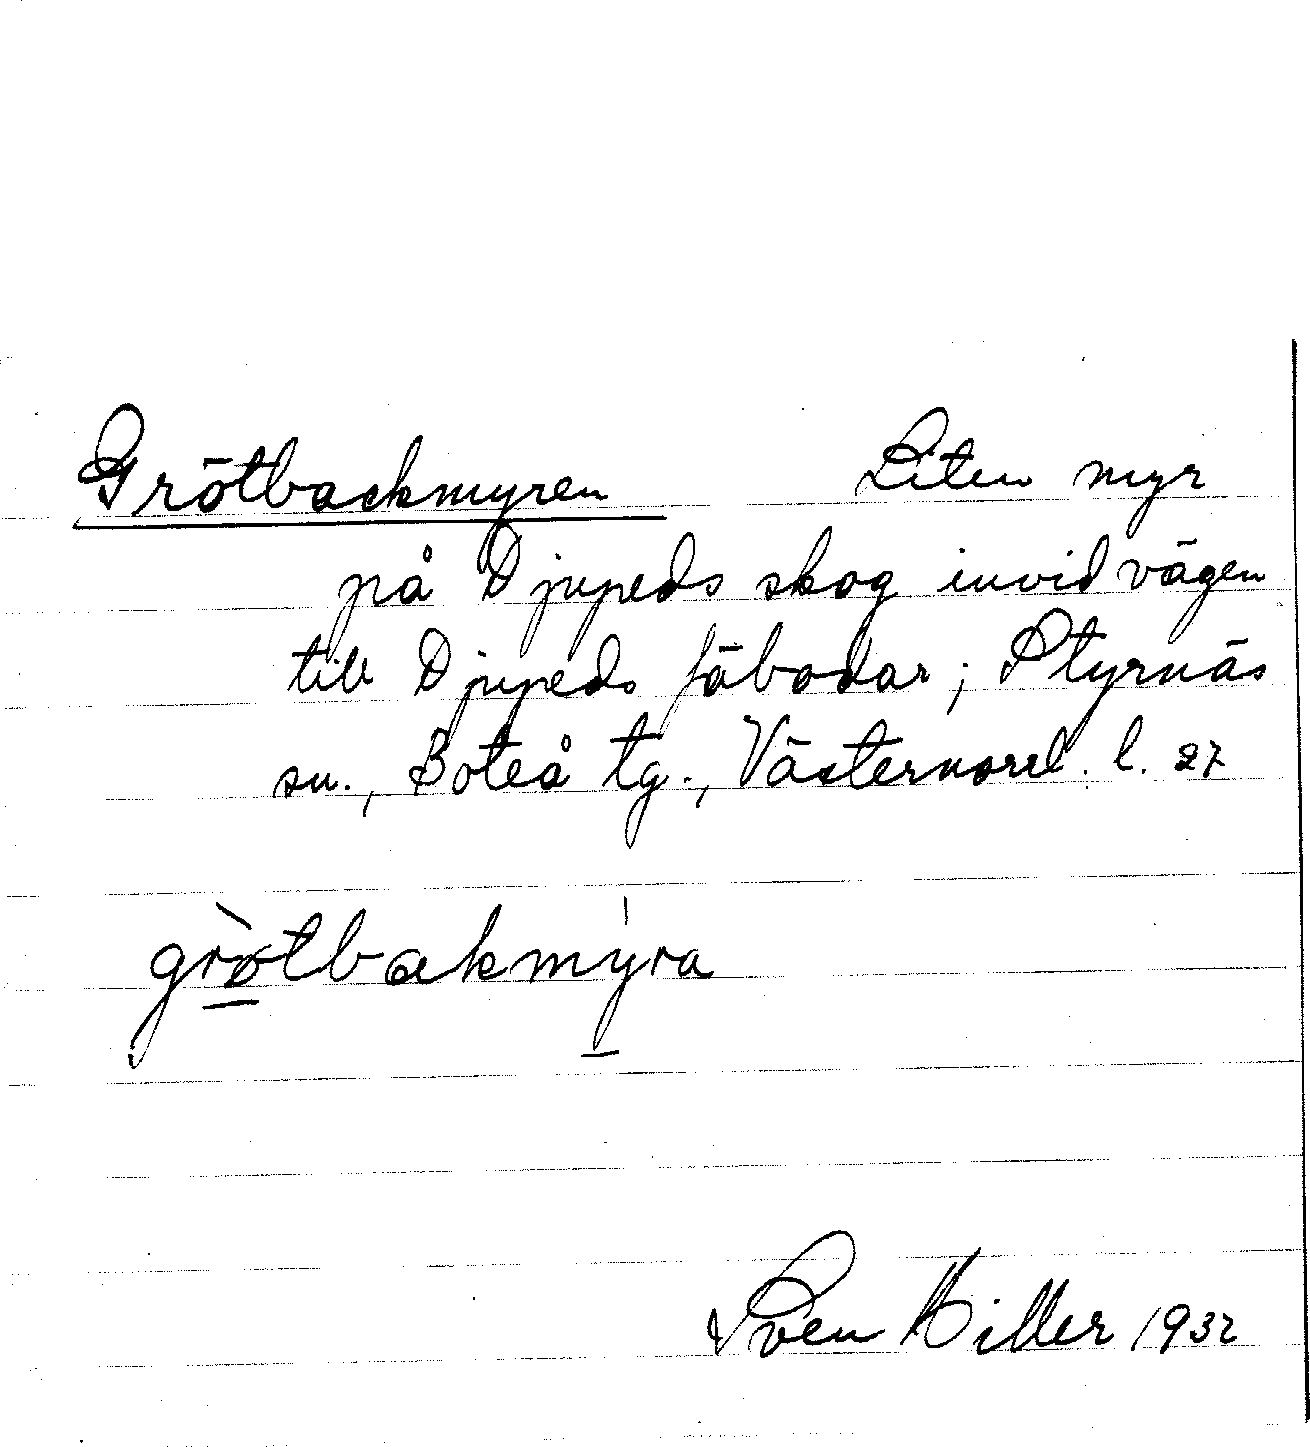 Grötbackmyren Liten myr
på Djupeds skog invid vägen
till Djupeds fäbodar; Styrnäs
sn., Boteå tg., Västernorrl. l. 27
grø̀tbakmýra
Sven Hiller 1932